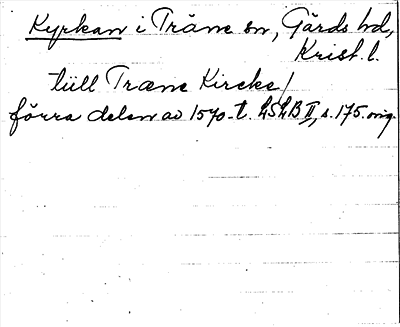 Kyrkan i Träne sn, Gärds hd,
Krist. l.
tüll Træne Kircke/
förra delen av 1570-t. LSLB II, s. 175. orig.